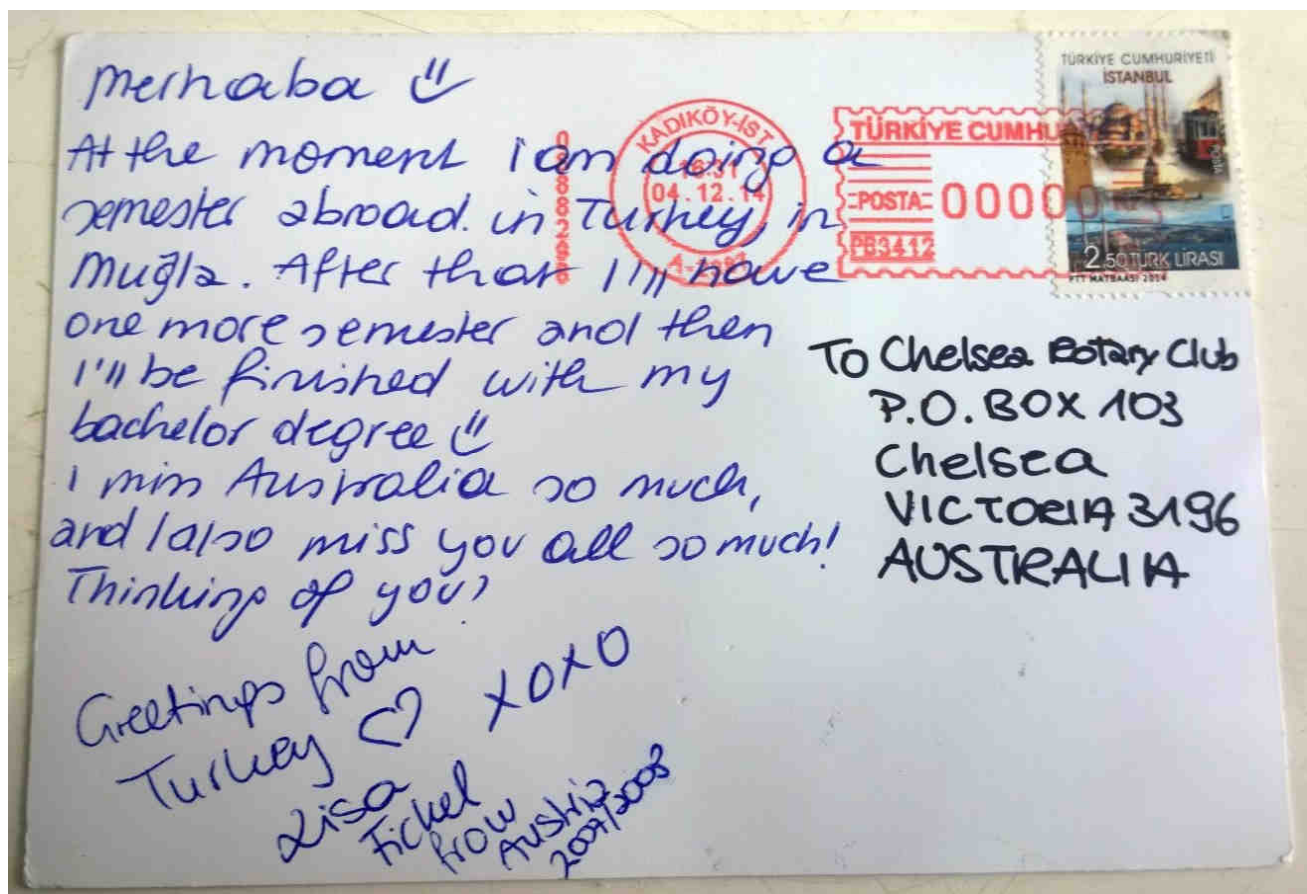 Merhaba
At the moment I am doing a
semester abroad in Turkey, in
Muğla. After that I'll have
one more semester and then
I'll be finished with my
bachelor degree
I miss Australia so much,
and I also miss you all so much!
Thinking of you,
Greetings from
Turkey ♡ XOXO
Lisa
Fickel
from
Austria
2007/2008
KADIKÖY-İST
16:31
04.12.14
TÜRKİYE CUMHU
POSTA
0000
PB3412
TÜRKİYE CUMHURİYETİ
İSTANBUL
2.50 TÜRK LİRASI
PTT MATBAASI 2014
To Chelsea Rotary Club
P.O. BOX 103
Chelsea
VICTORIA 3196
AUSTRALIA